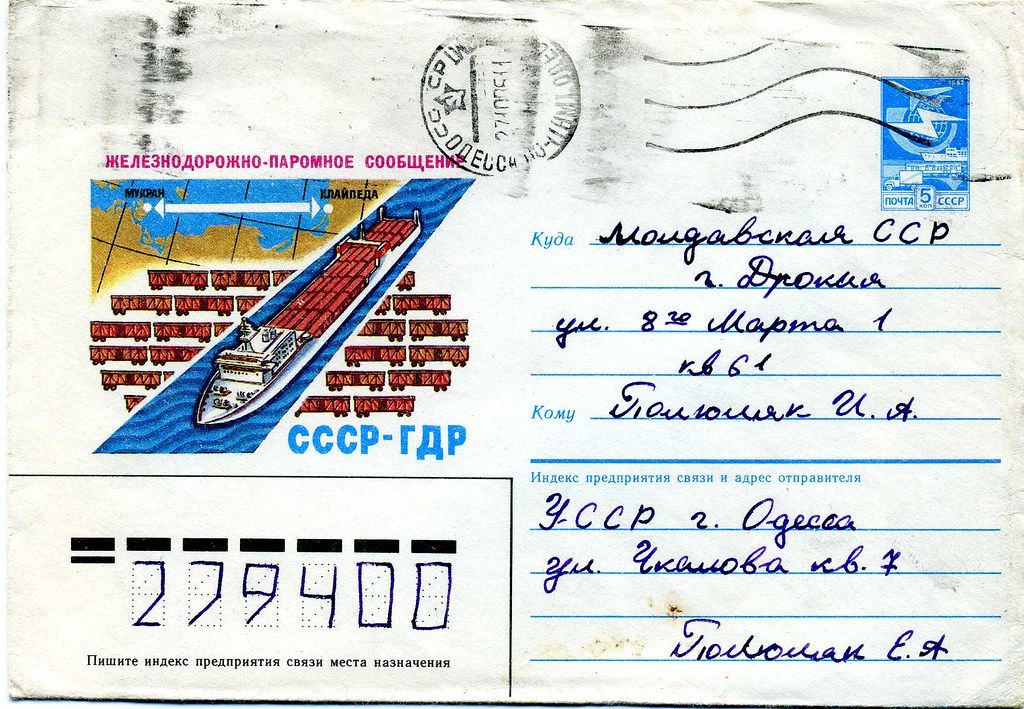 ОДЕССА
ЖЕЛЕЗНОДОРОЖНО-ПАРОМНОЕ СООБЩЕНИЕ
МУКРАН
КЛАЙПЕДА
СССР-ГДР
ПОЧТА 5 КОП СССР
Куда Молдавская ССР
г. Дрокия
ул. 8го Марта 1
кв 61
Кому Полюмяк И. А.
Индекс предприятия связи и адрес отправителя
УССР г. Одесса
ул. Чкалова кв. 7
Полюмяк Е. А
279400
Пишите индекс предприятия связи места назначения